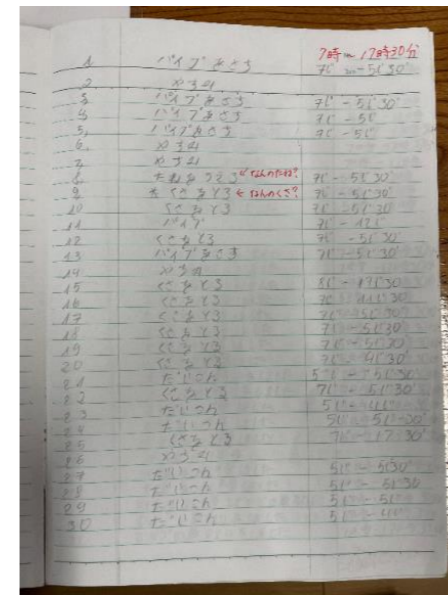 7時〜17時30分
1 パイプをさす 7じ〜5じ30
2 やすみ
3 パイプをさす 7じ-5じ30
4 パイプをさす 7じ-5じ
5, パイプをさす 7じ-5じ
6, やすみ
7, やすみ
8 たねをうえる ←なんのたね? 7じ-5じ30
9 くさをとる ←なんのくさ? 7じ-5じ30
10 くさをとる 7じ-5じ30
11 パイプ 7じ-12じ
12 くさをとる 7じ-5じ30
13 パイプをさす 7じ-5じ30
14 やすみ
15 くさをとる
16 くさをとる
17 くさをとる 7じ-5じ30
18 くさをとる 7じ-5じ30
19 くさをとる 7じ-5じ30
20 くさをとる 7じ-4じ30
21 だいこん
22 くさをとる 7じ-5じ30
23 だいこん 5じ-4じ
24 だいこん 5じ-5じ-30
25 くさをとる
26 やすみ
27 だいこん 5じ-5じ30
28 だいこん 5じ-5じ30
29 だいこん 5じ-5じ
30 だいこん 5じ-4じ